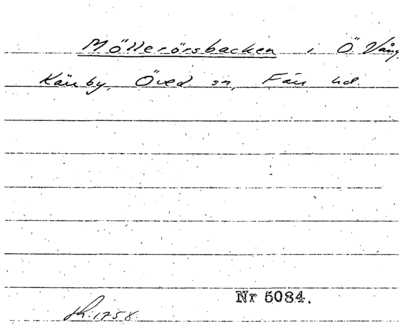 Möllerörsbacken i Ö Vång
Kärrby, Öved sn, Färs hd.
Nr 5084.
1758.